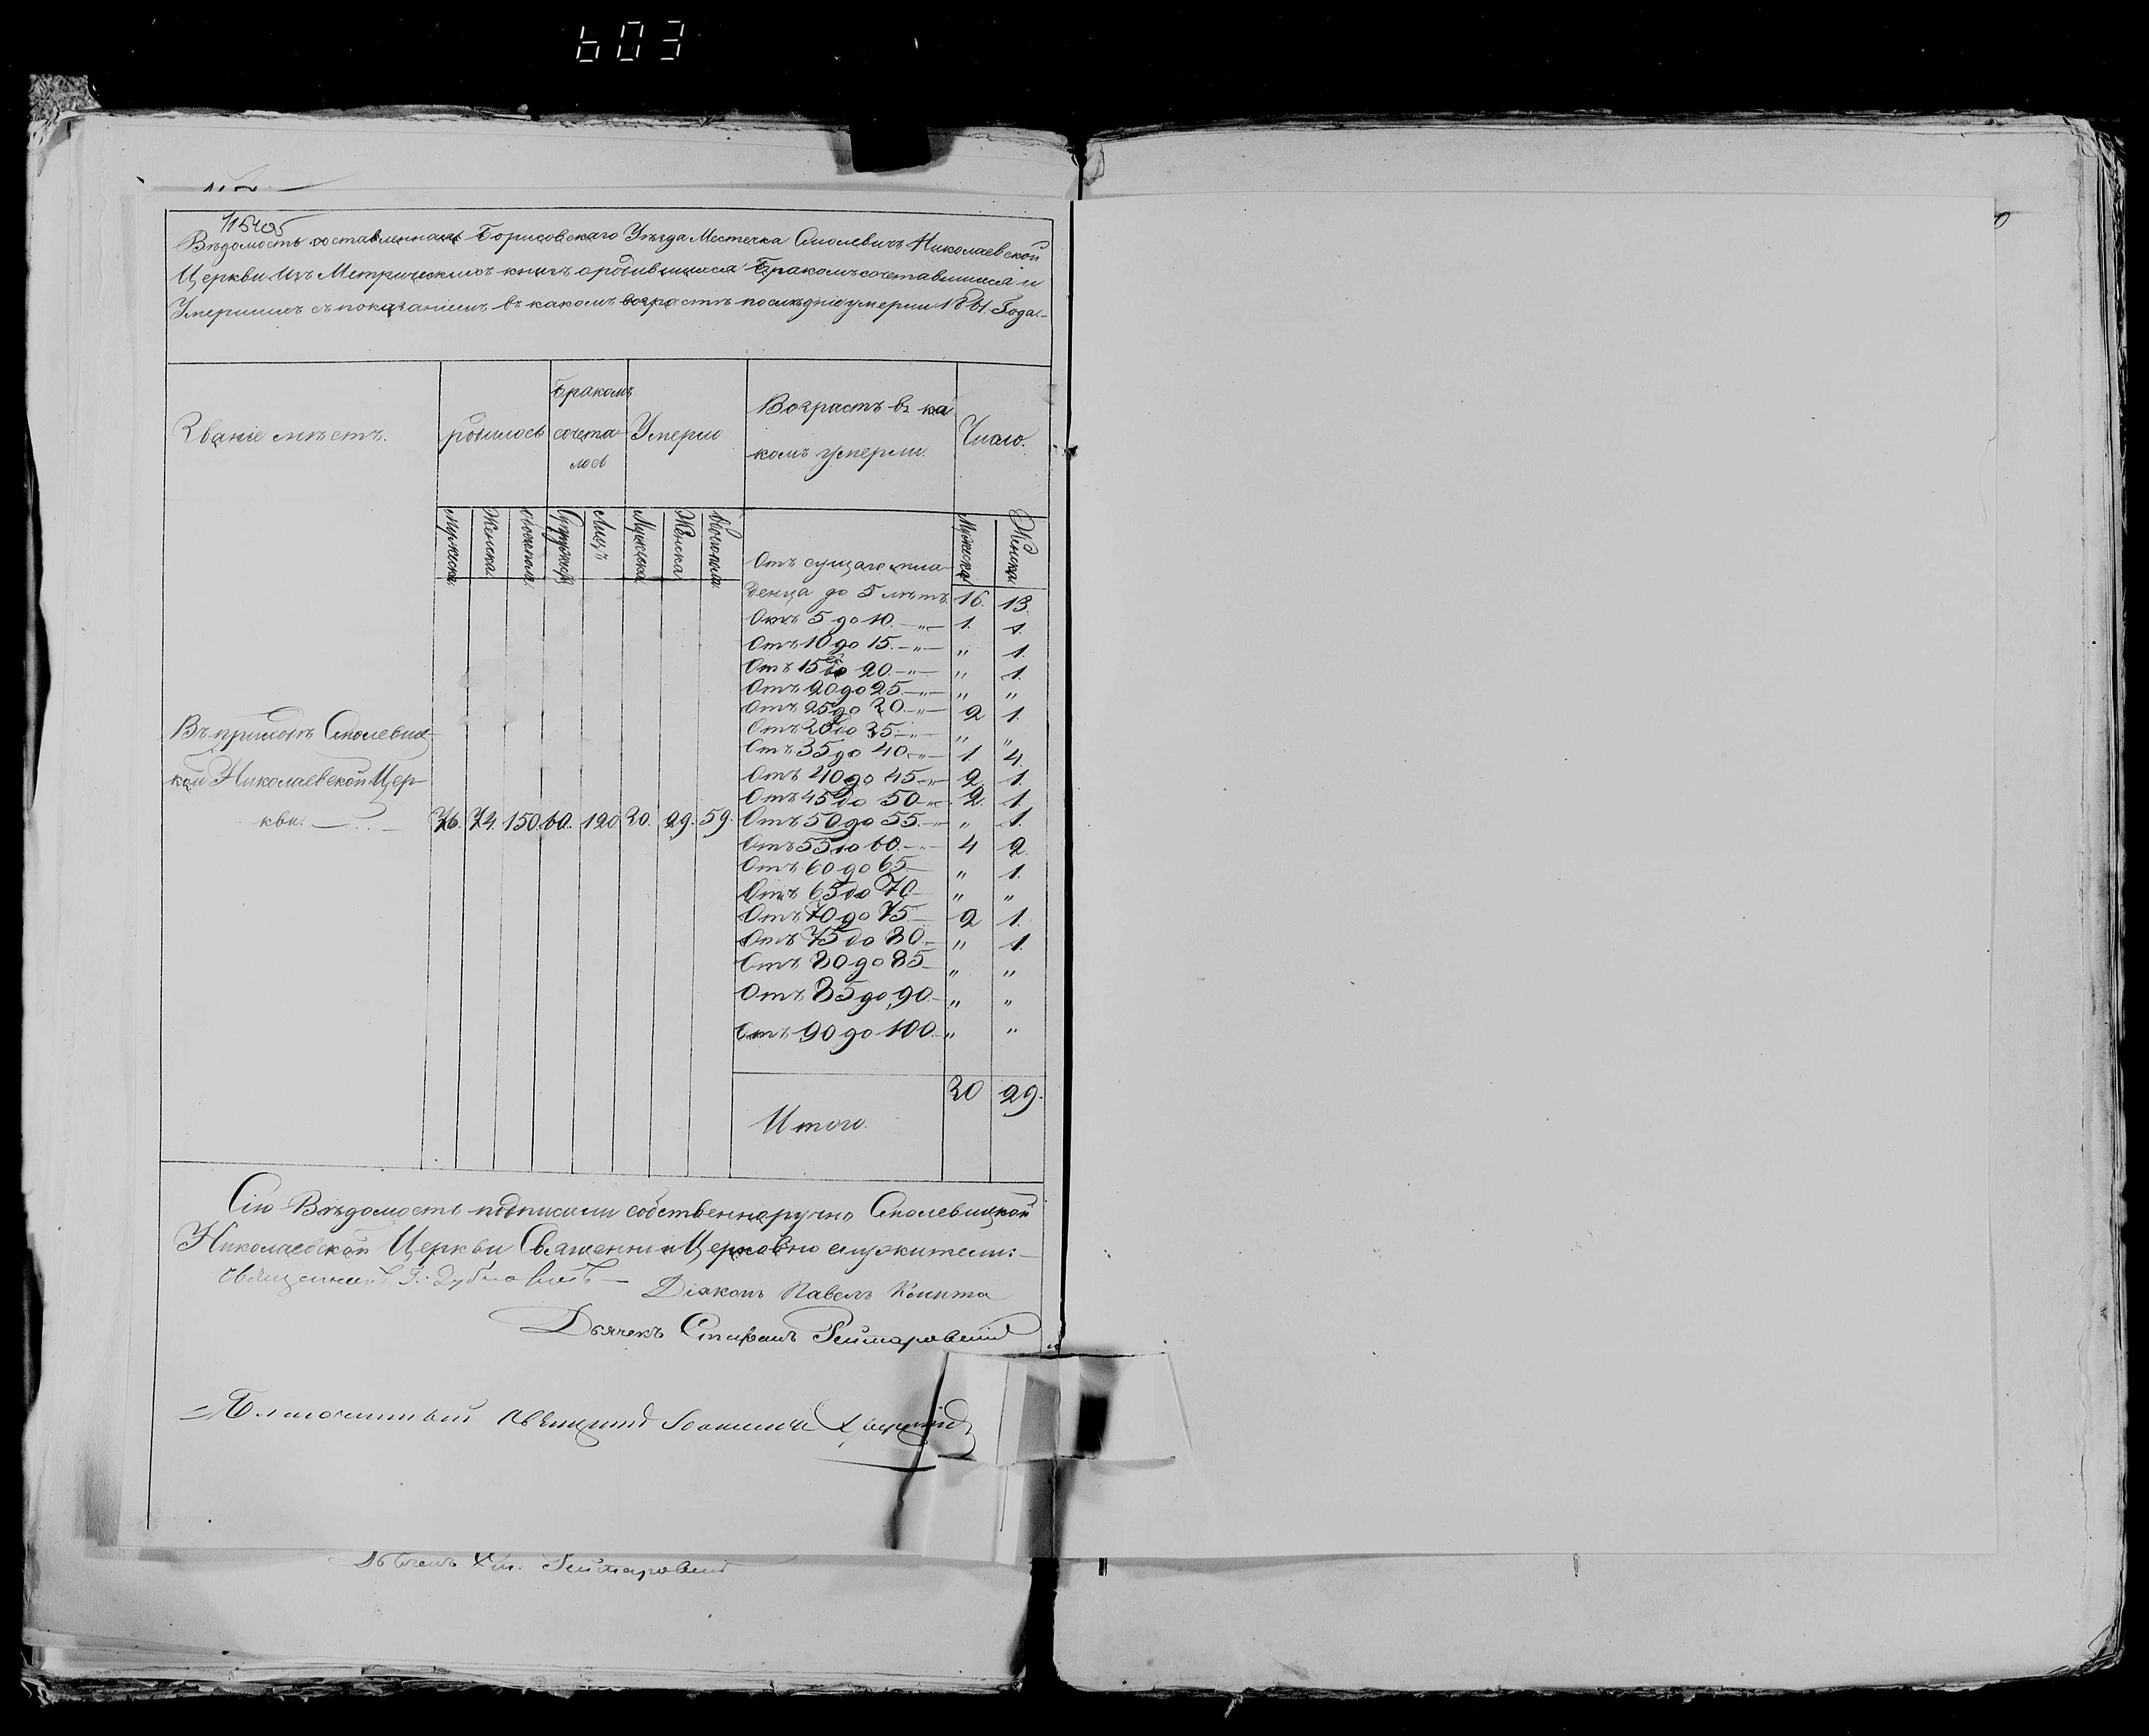 603
115405
Вѣдомость составленная Борисовскаго Уѣзда Местечка Смолевичъ Николаевской
Церкви Изъ Метрическихъ книгъ о родившихся Бракомъ сочетавшихся и
Умершихъ съ показаніемъ въ какомъ возрастѣ послѣдніе умерли 1861 Года.
Званіе мѣстъ.
родилось
Бракомъ
сочета-
лось
Умерло
Возрастъ въ ка
комъ умерли.
Число.
Мужеска.
Женска.
Лицъ
Мужеска
Женска
Обоего пола
Мужеска
Женска
Отъ сущаго мла
денца до 5 лѣтъ. 16. 13.
Отъ 5 до 10. —„— 1. 1.
Отъ 10 до 15. —„— „ 1.
Отъ 15 до 20. —„— „ 1.
Отъ 20 до 25. —„— „ „
Отъ 25 до 30. —„— 2 1.
Отъ 30 до 35 —„— „ „
Отъ 35 до 40. —„— 1. 4.
Отъ 40 до 45 —„— 2. 1.
Отъ 45 до 50 —„— 2. 1.
Въ приходѣ Смолевиц-
кой Николаевской Цер-
кви. 76. 74. 150. 60. 120 30. 29. 59. Отъ 50 до 55. —„— „ 1.
Отъ 55 до 60. —„— 4 2.
Отъ 60 до 65 — „ 1.
Отъ 65 до 70 — „ „
Отъ 70 до 75 — 2 1.
Отъ 75 до 80. — „ 1.
Отъ 80 до 85 — „ „
Отъ 85 до 90. — „ „
Отъ 90 до 100. „ „
Итого. 30 29.
Сію Вѣдомость подписали собственноручно Смолевицкой
Николаевской Церкви Священно и Церковно служители:
Діаконъ Павелъ
Дьячекъ Стефанъ
Благочинный Священникъ
Дьячекъ